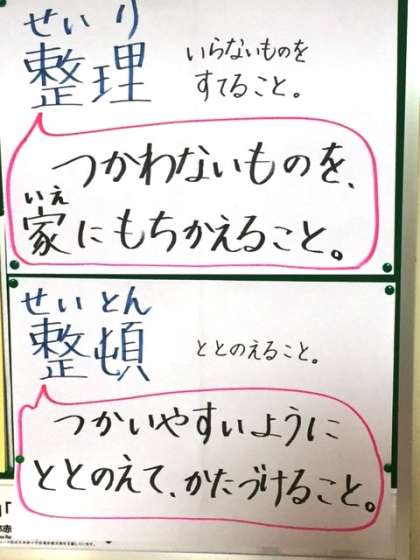 せいり
整理
いらないものを
すてること。
つかわないものを、
いえ
家にもちかえること。
せいとん
整頓
ととのえること。
つかいやすいように
ととのえて、かたづけること。